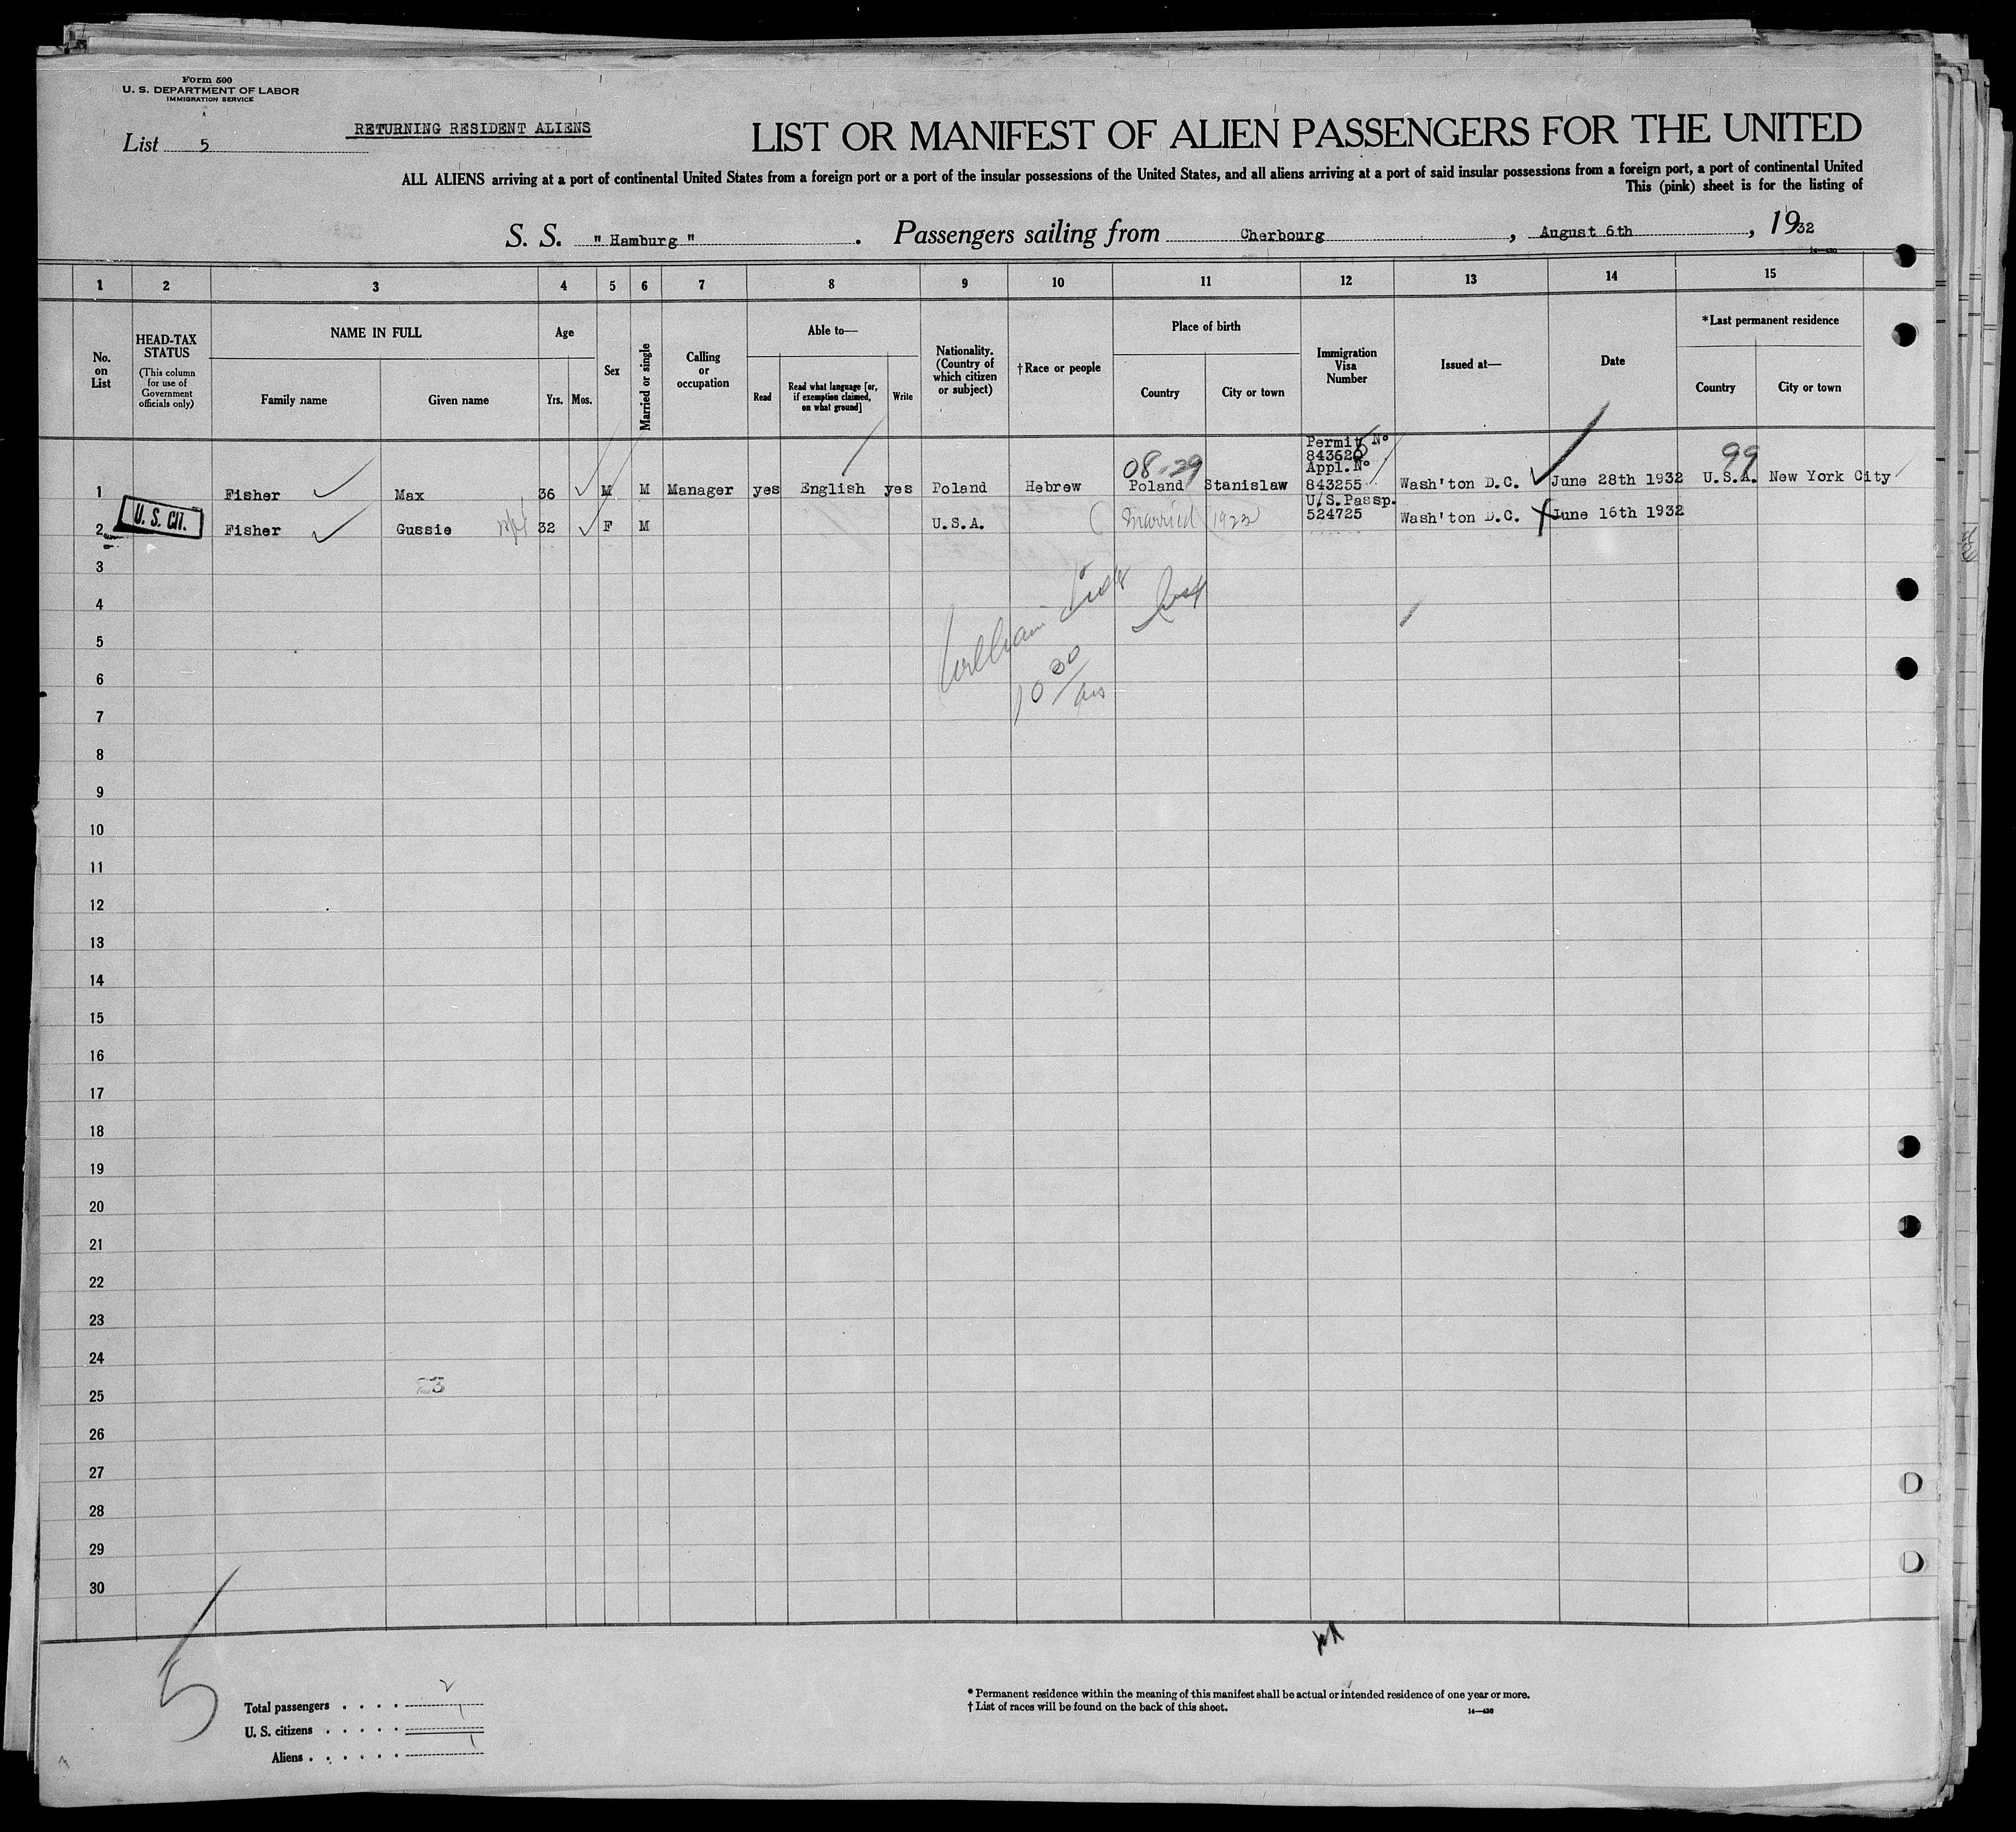 Form 500
U. S. DEPARTMENT OF LABOR
IMMIGRATION SERVICE
RETURNING RESIDENT ALIENS
List 5
LIST OR MANIFEST OF ALIEN PASSENGERS FOR THE UNITED
ALL ALIENS arriving at a port of continental United States from a foreign port or a port of the insular possessions of the United States, and all aliens arriving at a port of said insular possessions from a foreign port, a port of continental United
This (pink) sheet is for the listing of
S. S. " Hamburg " . Passengers sailing from Cherbourg , August 6th , 1932
14—430
1 2 3 4 5 6 7 8 9 10 11 12 13 14 15
No. on List
HEAD-TAX STATUS
(This column for use of Government officials only)
NAME IN FULL
Family name Given name
Age
Yrs. Mos.
Sex
Married or single
Calling or occupation
Able to—
Read
Read what language [or, if exemption claimed, on what ground]
Write
Nationality. (Country of which citizen or subject)
†Race or people
Place of birth
Country City or town
Immigration Visa Number
Issued at—
Date
*Last permanent residence
Country City or town
Permit Nº
84362
Appl. Nº
08-29
99
1 Fisher Max 36 M M Manager yes English yes Poland Hebrew Poland Stanislaw 843255 Wash'ton D.C. June 28th 1932 U.S.A. New York City
U.S.Passp.
2 U. S. CIT. Fisher Gussie 32 F M U.S.A. (Married 1922) 524725 Wash'ton D.C. June 16th 1932
3
4
William
5
6
10 30
7
8
9
10
11
12
13
14
15
16
17
18
19
20
21
22
23
24
25 23
26
27
28
29
30
5
Total passengers . . . . 2
U. S. citizens . . . . . 1
Aliens . . . . . . 1
* Permanent residence within the meaning of this manifest shall be actual or intended residence of one year or more.
† List of races will be found on the back of this sheet.
14—430